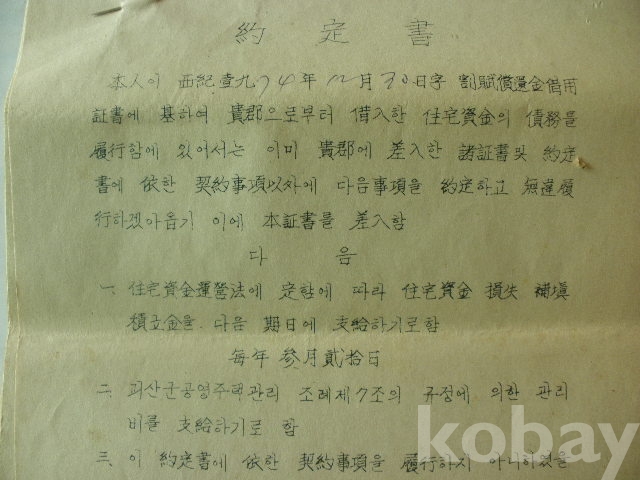 約定書
本人이 西紀壹九74年 12月 30日字 割賦償還金借用
証書에 基하여 貴郡으로부터 借入한 住宅資金의 債務를
履行함에 있어서는 이미 貴郡에 差入한 諸証書및 約定
書에 依한 契約事項以外에 다음事項을 約定하고 無違履
行하겠아옵기 이에 本証書를 差入함
다음
一. 住宅資金運營法에 定함에 따라 住宅資金 損失 補塡
積立金을 다음 期日에 支給하기로함
每年 參月貳拾日
二. 괴산군공영주택관리 조례제7조의 규정에 의한 관리
비를 支給하기로 함
三. 이 約定書에 依한 契約事項을 履行하지 아니하였을
kobay